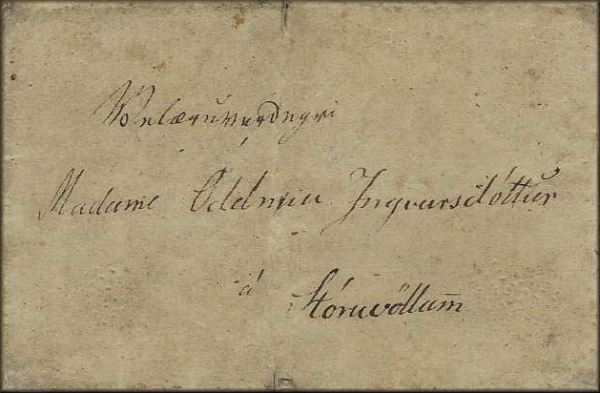 Velæruverdugri
Madame Oddnÿu Ingvarsdóttur
á
Stóruvöllum̄